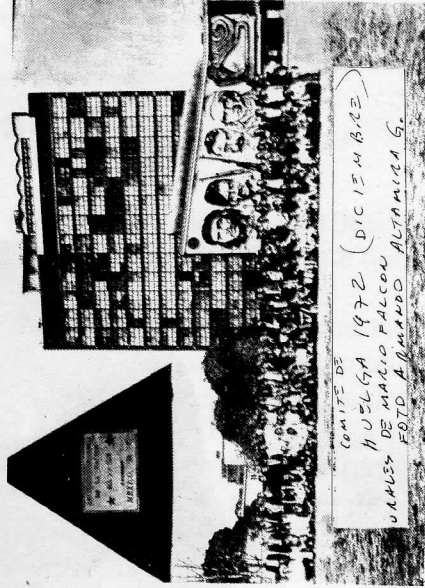 COMITE DE
HUELGA 1972 (DICIEMBRE)
URALES DE MARIO FALCON
FOTO ARMANDO ALTAMIRA G.
MEXICO